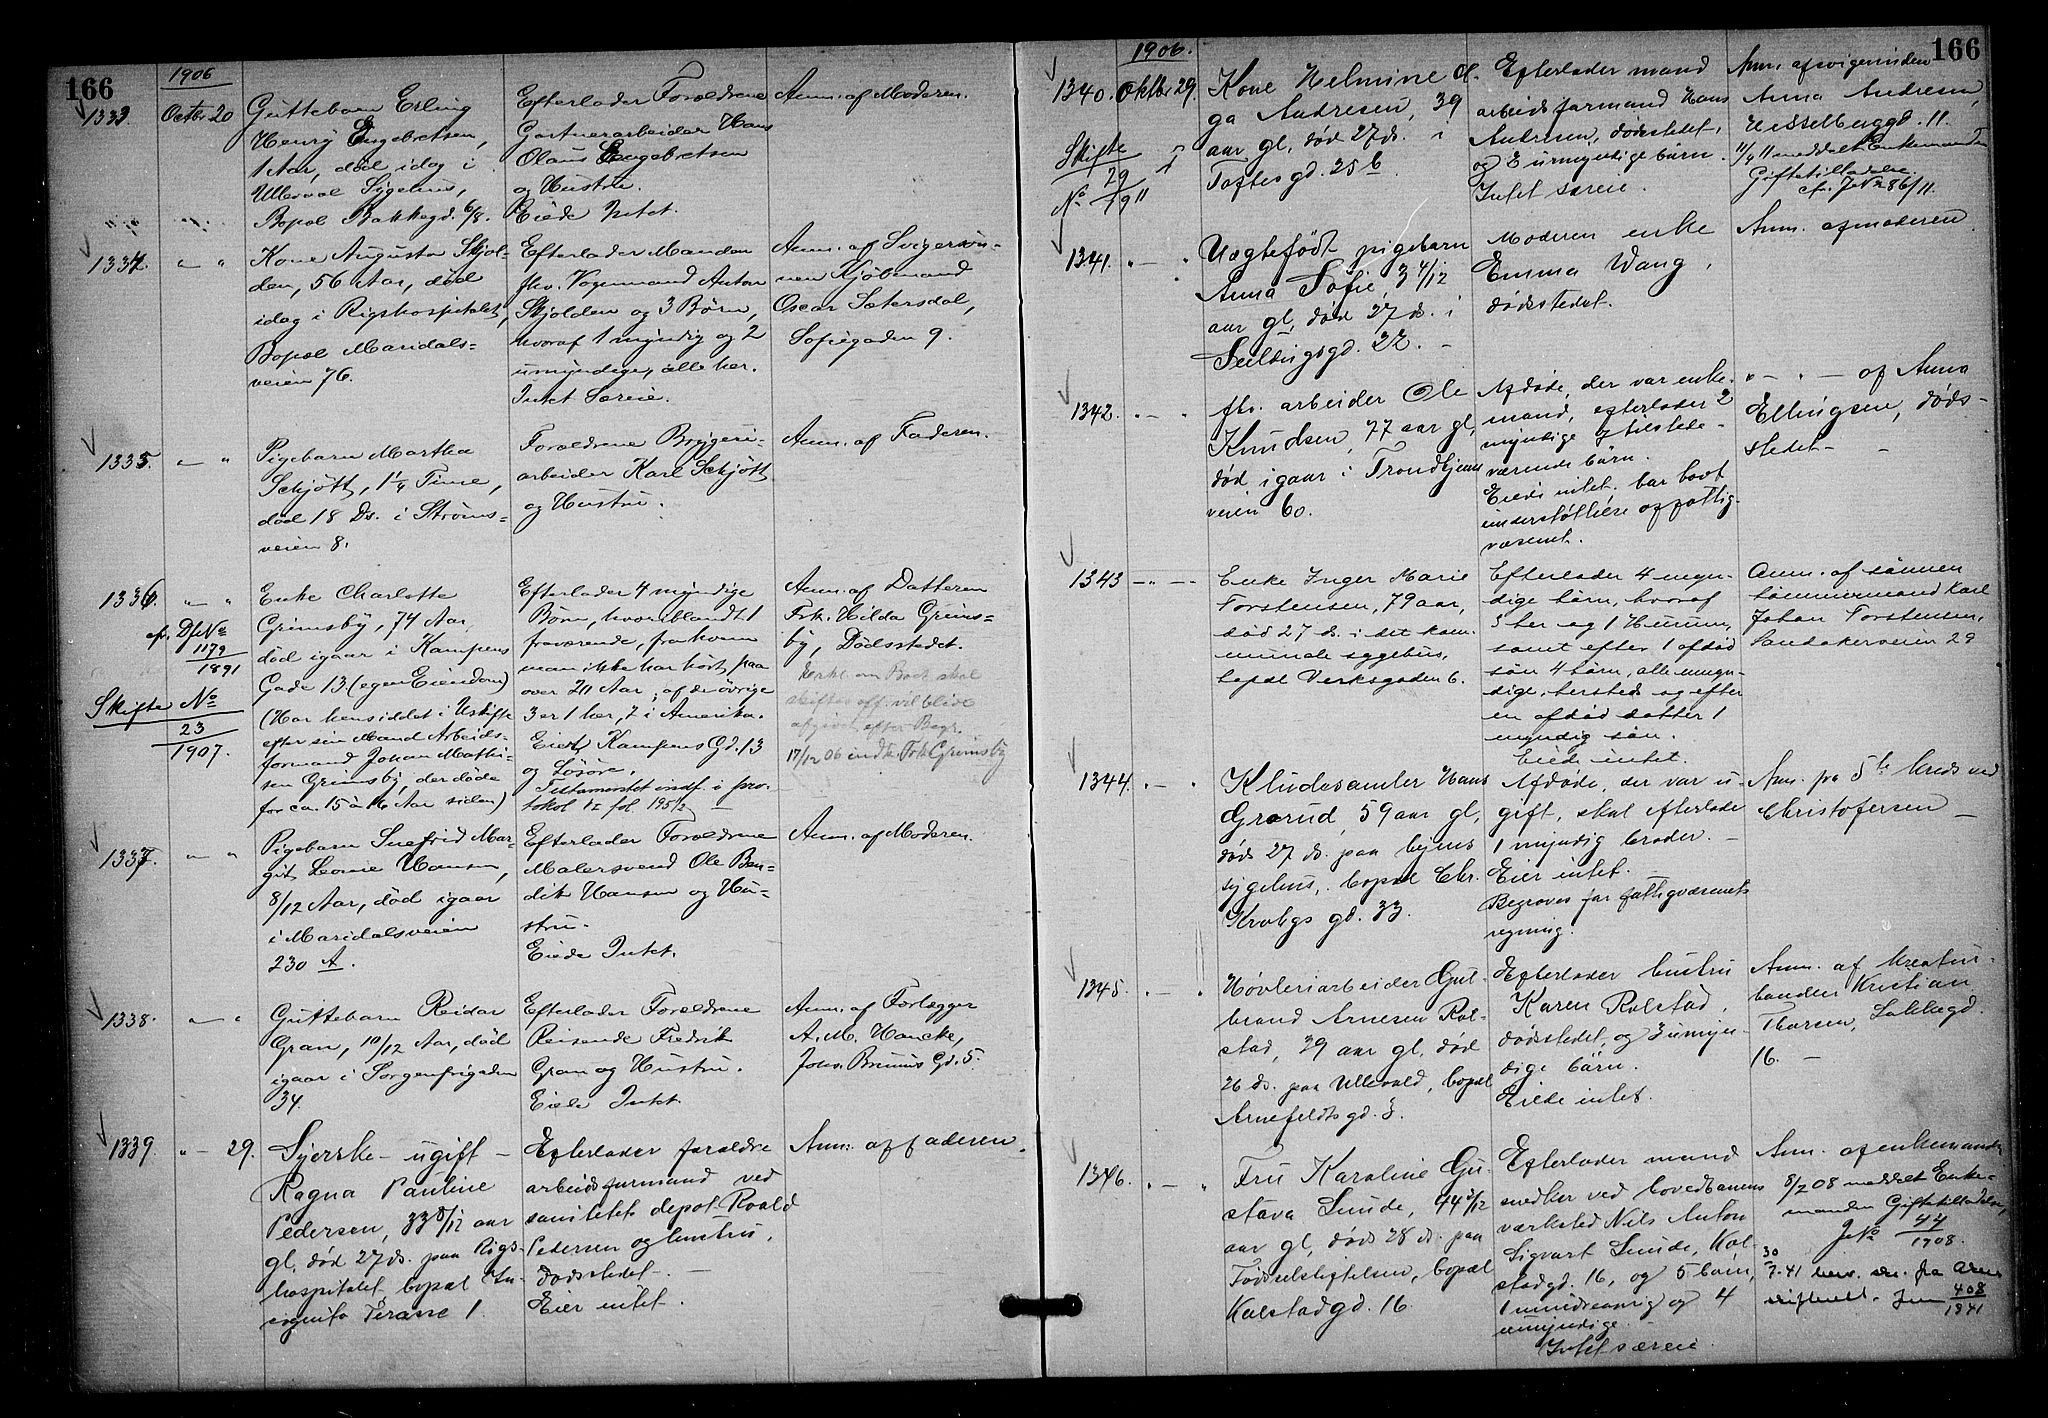 166
1906
1333.
Octbr 20
Guttebarn Erling
Henry Engebretsen,
1 Aar, død idag i
Ullevaal Sygehus,
Bopæl Bakkegd. 6/8.
Efterlader Forældrene
Gartnerarbeider Hans
Olaus Engebretsen
og Hustru.
Eiede Intet.
Anm. af Moderen.
1334.
" — "
Kone Augusta Skjol-
den, 56 Aar, død
idag i Rigshospitalet,
Bopæl Maridals-
veien 76.
Efterlader Manden
fhv. Vognmand Anton
Skjolden og 3 Børn,
hvoraf 1 myndig og 2
umyndige, alle her.
Intet Særeie.
Anm. af Svigersøn-
nen Kjøbmand
Oscar Sætersdal,
Sofiegaden 9.
1335.
" — "
Pigebarn Martha
Schjøtt, 1 1/4 Time,
død 18 Ds. i Strøms-
veien 8.
Forældrene Bryggeri-
arbeider Karl Schjøtt
og Hustru.
Anm. af Faderen.
1336.
" — "
cfr. Df No
1179
1891
Skifte No
23
1907.
Enke Charlotte
Grimsby, 74 Aar,
død igaar i Kampens
Gade 13 (egen Eiendom)
(Har hensiddet i Uskifte
efter sin Mand Arbeids-
formand Johan Mathi-
sen Grimsby, der døde
for ca. 15 à 16 Aar siden)
Efterlader 4 myndige
Børn, hvoriblandt 1
fraværende, fra hvem
man ikke har hørt paa
over 20 Aar; af de øvrige
3 er 1 her, 2 i Amerika.
Eiet Kampens Gd. 13
og Løsøre.
Testamentet indf. i pro-
tokol VI fol. 195/2
Anm. af Datteren
Frk. Hilda Grims-
by, Dødsstedet.
Erkl. om Boet skal
skiftes off. vil blive
afgivet efter Begr.
17/12 06 indk. Frk. Grimsby
1337.
" — "
Pigebarn Snefrid Mar-
git Leonie Hansen,
8/12 Aar, død igaar
i Maridalsveien
230 A.
Efterlader Forældrene
Malersvend Ole Ben-
dik Hansen og Hu-
stru.
Eiede Intet.
Anm. af Moderen.
1338.
" — "
Guttebarn Reidar
Gran, 10/12 Aar, død
igaar i Sorgenfrigaden
34.
Efterlader Forældrene
Reisende Fredrik
Gran og Hustru.
Eiede Intet.
Anm. af Forlægger
A. M. Hancke,
Johs. Bruuns Gd. 5.
1339.
" — 29.
Syerske — ugift —
Ragna Pauline
Pedersen, 33 8/12 aar
gl, død 27 ds. paa Rigs-
hospitalet, bopæl In-
cognito Terasse 1.
Efterlader forældre
arbeidsformand ved
sanitets depot Roald
Pedersen og hustru,
dødsstedet. —
Eier intet.
Anm. af faderen.
166
1906.
1340.
Oktbr 29.
Skifte
29
No 1911
Kone Helmine Hel-
ga Andresen, 39
aar gl, død 27 ds. i
Toftesgd. 25 b
Efterlader mand
arbeidsformand Hans
Andresen, dødsstedet,
og 2 umyndige børn.
Intet særeie.
Anm. af svigerinden
Anna Andresen,
Hesselbergsgd. 11.
11/9 11 meddelt Enkemanden
Giftetilladelse
cfr. J No 286/11.
1341.
" — "
Uægtefødt pigebarn
Anna Sofie, 3 4/12
aar gl, død 27 ds. i
Seildugsgd. 22. —
Moderen enke
Emma Wang,
dødsstedet.
Anm. af moderen
1342.
" — "
fhv. arbeider Ole
Knudsen, 77 aar gl,
død igaar i Trondhjems
veien 60.
Afdøde, der var enke-
mand, efterlader 2
myndige tilstede-
værende børn.
Eiede intet, har havt
understøttelse af fattig-
væsenet.
" — " — af Anna
Ellingsen, døds-
stedet —
1343
— " —
Enke Inger Marie
Torstensen, 79 aar,
død 27 ds. i det kom-
munale sygehus,
bopæl Verksgaden 6.
Efterlader 4 myn-
dige børn, hvoraf
3 her og 1 Hurum,
samt efter 1 afdød
søn 4 børn, alle myn-
dige, hersteds og efter
en afdød datter 1
myndig søn.
Eiede intet.
Anm. af sønnen
tømmermand Karl
Johan Torstensen,
Sandakerveien 29
1344.
" — "
Kludesamler Hans
Grorud, 59 aar gl,
død 27 ds. paa byens
sygehus, bopæl Chr.
Krohgs gd. 33.
Afdøde, der var u-
gift, skal efterlade
1 myndig broder. —
Eier intet.
Begraves for fattigvæsenets
regning.
Anm. fra 5te kreds ved
Christofersen —
1345.
" — "
Høvleriarbeider Gul-
brand Arnesen Rol-
stad, 39 aar gl, død
26 ds. paa Ullevold, bopæl
Arnefeldtsgd. 3.
Efterlader hustru
Karen Rolstad,
dødsstedet, og 3 umyn-
dige børn.
Eiede intet.
Anm. af kreatur-
handler Kristian
Thorsen, Lakkegd.
16. —
1346.
" — "
Fru Karoline Gu-
stava Lunde, 44 2/12
aar gl, død 28 ds. paa
Fødselsstiftelsen, bopæl
Kalstadgd. 16
Efterlader mand
snedker ved hovedbanens
værksted Nils Anton
Sigvart Lunde, Kal-
stadgd. 16, og 5 barn,
1 mindreaarig og 4
umyndige. —
Intet særeie.
Anm. af enkemanden
8/2 08 meddelt Enke-
manden Giftetilladelse,
J No 44
1908.
30
7-41 fra
408
1941